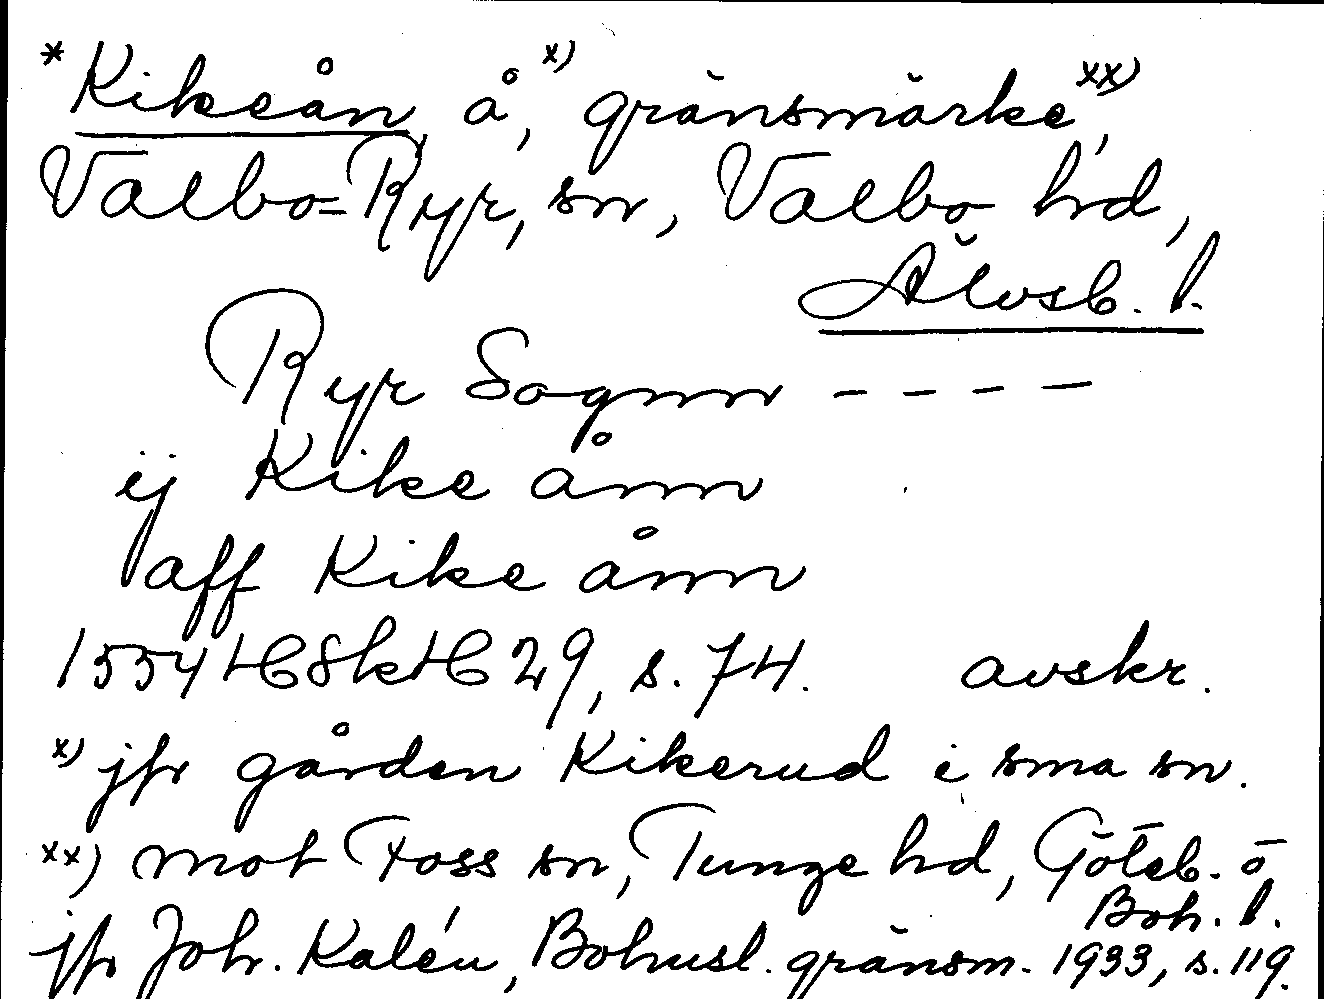 * Kikeån, å,x) gränsmärke,xx)
Valbo-Ryr, sn, Valbo hd,
Älvsb. l.
Ryr Sognn - - - -
ij Kike ånn
aff Kike ånn
1554 HC8kHC29, s. 74. avskr.
x) jfr gården Kikerud i sma sn.
xx) mot Foss sn, Tunge hd, Göteb. o
Boh. l.
jfr Joh. Kalén, Bohusl. gränsm. 1933, s. 119.